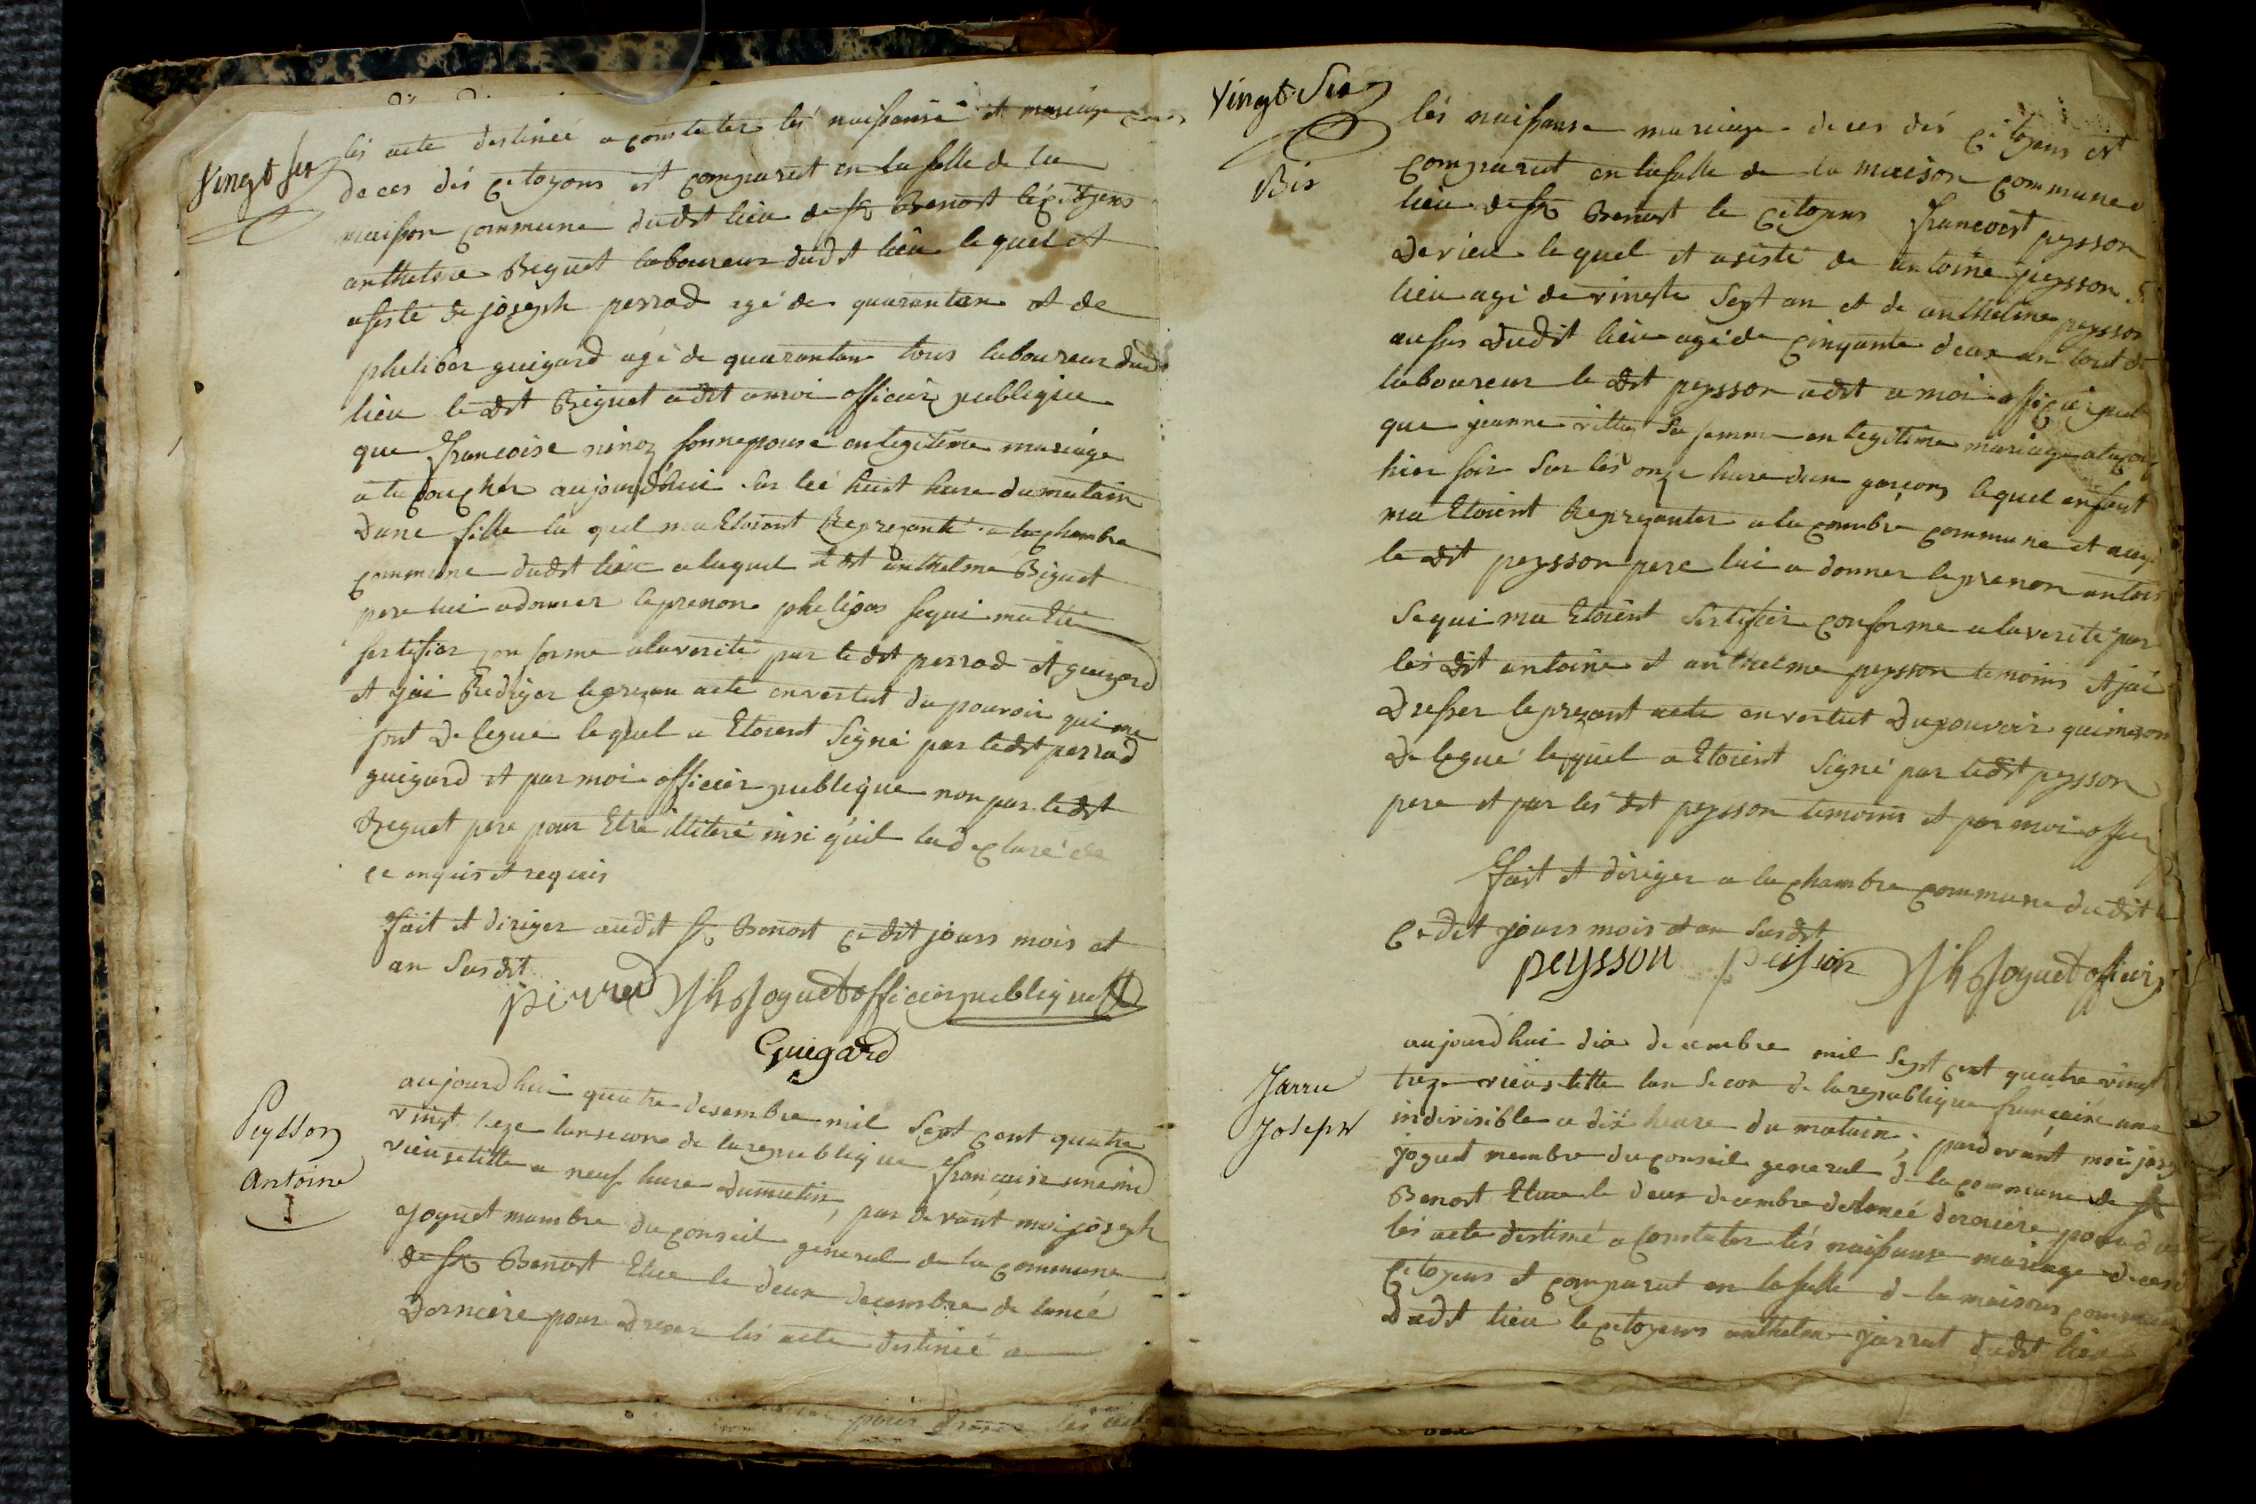 vingt six
les acte destineé a constater lés naissansé et mariage
deces dés çitoyens ést comparut en la salle de la
maison commune dudit lieu de st Benost le çitoyens
anthelme Béguet laboureur dudit lieu le quel et
asisté de joseph perrad agé de quarantan et de
pheliber guigard agé de quarantan tous laboureur dudt
lieu le dit Béguet a dit a moi officier publiqúe
que francoise ninoz sonnepouse en legitime mariage
a la couchér aujourdhui sur lés huit hure du matain
Dune fille la quel ma Etoient Represanté a la chambre
commune dudit lieu a laquel le dit anthelme Biguet
pere lui a donner le prenon phelipas sequi ma Eté
sertifier conforme a la verité par le dit perrad et guigard
et jai Rediger le presan acte en vertut du pouvoir qui me
sont Delegué le quel a Etoient Signé par le dit perrad
guigard et par moi officier publique non par le dit
Beguet pere pour Etre illiteré insi quil la declaré de
ce enquis et requis
fait et diriger audit st Benost ce dit jours mois et
an Susdit
perrad Jh Joguet officier publique
Guigard
Peysson
antoine
1
aujourdhui quatre desembre mil Sept cent quatre
vingt treze lan secon de la republique francaise une ind
vieu setille a neuf hure du matin, par devant moi joseph
joguet mambre du conseil general de la commune
de st Benost Elue le deux decembre de laneé
Derniere pour Dreser lés acte destinié a
vingt Six
Bis
lés naissanse mariage deces dés çitoyens est
comparut en la salle de la maison commune d
lieu de st Benost le çitoyens francoist peysson
De vieu le quel et asisté de antoine peysson
lieu agé de vingte Sept an et de anthelme peysson
ausus dudit lieu agé de çinquante deux an tout de
laboureur le dit peysson a dit a moi officier pub
que jeanne sa femme en legitime mariage a la cou
hier soir Sur lés onze hure dun garcons le quel enfant
ma Etoient Represanter a la commune et auqu
le dit peysson pere lui a donner le prenon antoi
Sequi ma Etoient Sertifier conforme a la verité par
lés dit antoine et anthelme peysson temoins et jai
Dresser le presant acte en vertut Du pouvoir qui me son
Delegué le quel a Etoient Signé par le dit peysson
pere et par lés dit peysson temoins et par moi offici
fait et diriger a la chambre commune dudit l
ce dit jours mois et an Susdit
peysson peission Jh Joguet officier
Jarru
Joseph
aujourdhui dix decembre mil Sept cent quatre vingt
treze vieu stille lan Secon de la republique francaise une
indivisible a dix heure du matain, par devant moi jose
joguet membre du conseil general de la commune de st
Benost Elue le deux decembre de laneé derniere pour d
lés acte destiné a Constater lés naissanse mariage deces
çitoyens et comparut en la salle de la maisons commune
Dudit lieu le çitoyens anthelme jarrut dudit lieu
pour dreser les acte